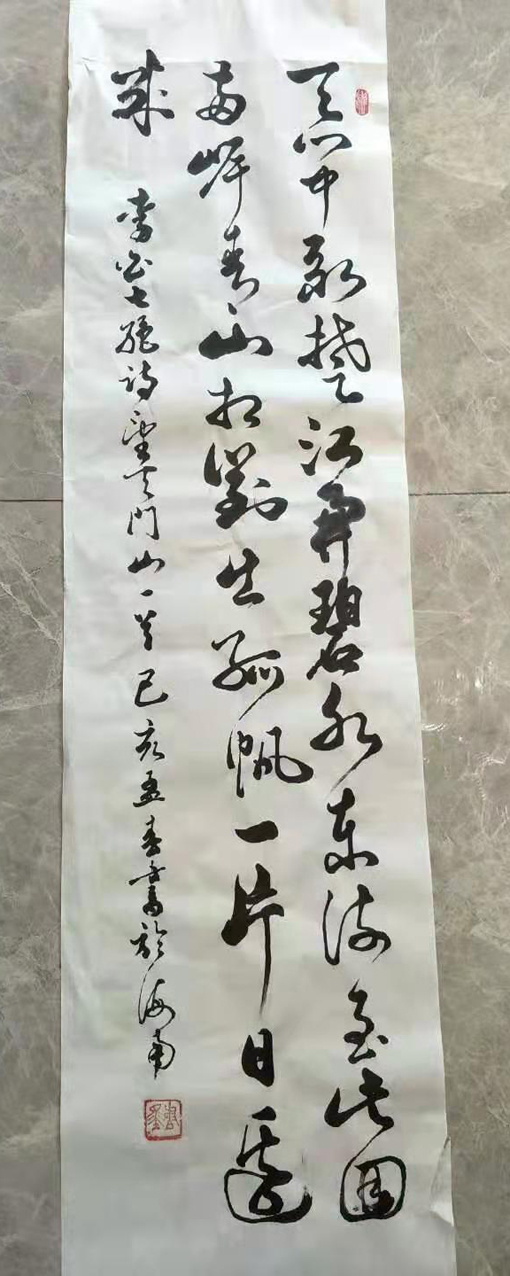 天门中断楚江開碧水东流至此回
两岸青山相對出孤帆一片日邊
来
李白七绝诗望天門山一首己亥孟春書於海南